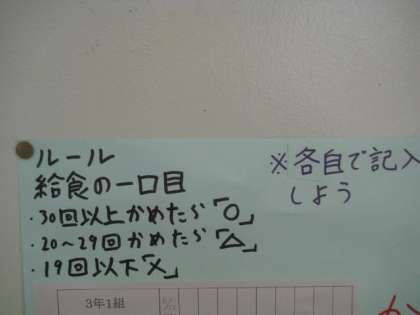 ルール
給食の一口目
・30回以上かめたら「○」
・20～29回かめたら「△」
・19回以下「×」
※各自で記入
しよう
3年1組